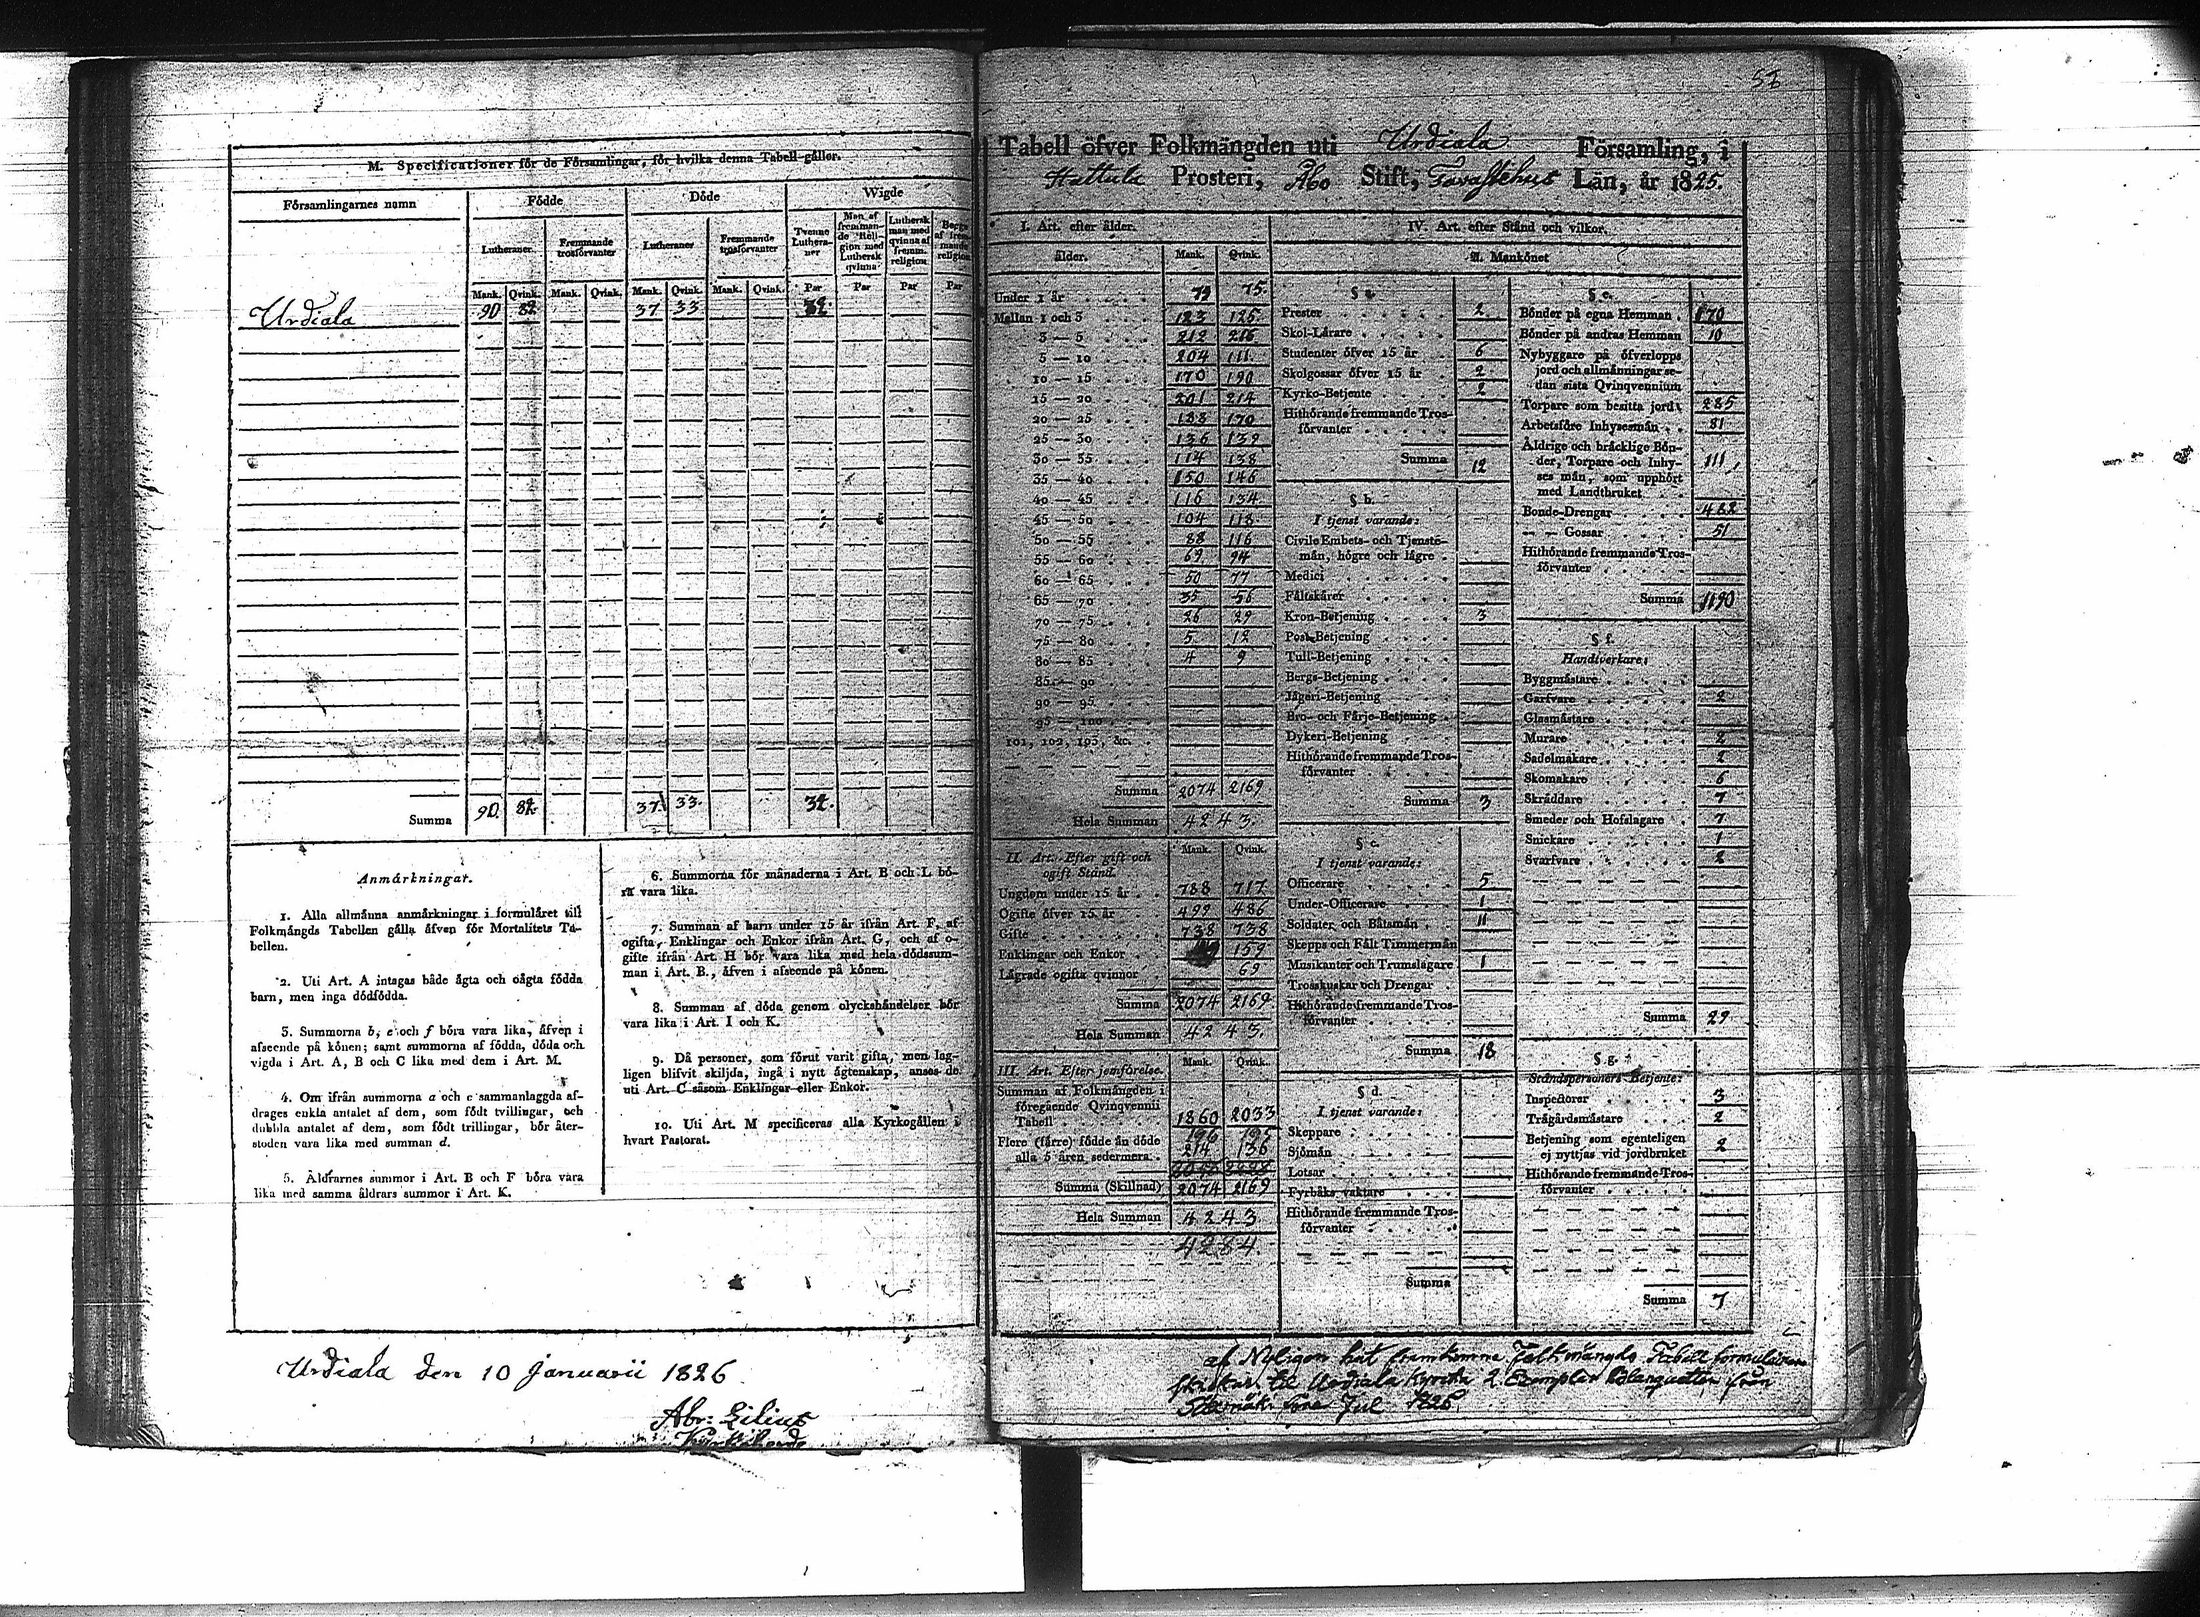 M. Specificationer för de Församlingar, för hvilka denna Tabell gäller.
Församlingarnes namn
Födde
Döde
Wigde
Lutheraner.
Fremmande trosförvanter
Lutheraner
Fremmande trosförvanter
Tvenne Lutheraner
Man af fremmande Religion med Luthersk qvinna
Luthersk man med qvinna af fremm. religion
Mank. Qvink. Mank. Qvink. Mank. Qvink. Mank. Qvink. Par Par Par Par
Urdiala 90 37 33
Summa 90 37 33
Anmärkningar.
1. Alla allmänna anmärkningar i formuläret till
Folkmängds Tabellen gälla äfven för Mortalitets Ta-
bellen.
2. Uti Art. A intagas både ägta och oägta födda
barn, men inga dödfödda.
3. Summorna b, e och f böra vara lika, äfven i
afseende på könen; samt summorna af födda, döda och
vigda i Art. A, B och C lika med dem i Art. M.
4. Om ifrån summorna a och c sammanlaggda af-
drages enkla antalet af dem, som födt tvillingar, och
dubbla antalet af dem, som födt trillingar, bör åter-
stoden vara lika med summan d.
5. Åldrarnes summor i Art. B och F böra vara
lika med samma åldrars summor i Art. K.
6. Summorna för månaderna i Art. B och L bö-
ra vara lika.
7. Summan af barn under 15 år ifrån Art. F, af
ogifta, Enklingar och Enkor ifrån Art. G, och af o-
gifte ifrån Art. H bör vara lika med hela dödssum-
man i Art. B., äfven i afseende på könen.
8. Summan af döda genom olyckshändelser bör
vara lika i Art. I och K.
9. Då personer, som förut varit gifta, men lag-
ligen blifvit skiljda, ingå i nytt ägtenskap, anses de
uti Art. C såsom Enklingar eller Enkor.
10. Uti Art. M specificeras alla Kyrkogällen i
hvart Pastorat.
Urdiala den 10 Januarii 1826
Abr: Lilius
Tabell öfver Folkmängden uti Urdiala Församling, i
Hattula Prosteri, Åbo Stift, Tavastehus Län, år 1825.
I. Art. efter ålder.
ålder. Mank. Qvink.
Under 1 år 75.
Mellan 1 och 3 123 125
3 — 5 212 216
5 — 10 204 111
10 — 15 170 190
15 — 20 201 214
20 — 25 188 170
25 — 30 136 139
30 — 35 114 138
35 — 40 150 146
40 — 45 116 134
45 — 50 104 118
50 — 55 88 116
55 — 60 69 94
60 — 65 50 77
65 — 70 35 56
70 — 75 26 29
75 — 80 5 12
80 — 85 4 9
85 — 90
90 — 95
95 — 100
101, 102, 103, &c.
Summa 2074 2169
Hela Summan 4243.
II. Art. Efter gift och
ogift Stånd. Mank. Qvink.
Ungdom under 15 år 788 717
Ogifte öfver 15 år 499 486
Gifte 738 738
Enklingar och Enkor 159
Lägrade ogifta qvinnor 69
Summa 2074 2169
Hela Summan 4243.
III. Art. Efter jemförelse. Mank. Qvink.
Summan af Folkmängden i
föregående Qvinqvennii
Tabell 1860 2033
Flere (färre) födde än döde
alla 5 åren sedermera 214 136
Summa (Skillnad) 2074 2169
Hela Summan 4243
4284.
IV. Art. efter Stånd och vilkor.
A. Mankönet
§ a.
Prester 2
Skol-Lärare
Studenter öfver 15 år 6
Skolgossar öfver 15 år 2
Kyrko-Betjente 2
Hithörande fremmande Tros-
förvanter
Summa 12
§ b.
I tjenst varande:
Civile Embets- och Tjenste-
män, högre och lägre
Medici
Fältskärer
Kron-Betjening 3
Post-Betjening
Tull-Betjening
Bergs-Betjening
Jägeri-Betjening
Bro- och Färje-Betjening
Dykeri-Betjening
Hithörande fremmande Tros-
förvanter
Summa 3
§ c.
I tjenst varande:
Officerare 5
Under-Officerare 1
Soldater och Båtsmän 11
Skepps och Fält Timmermän
Musikanter och Trumslagare 1
Trosskuskar och Drengar
Hithörande fremmande Tros-
förvanter
Summa 18
§ d.
I tjenst varande:
Skeppare
Sjömän
Lotsar
Fyrbåks vaktare
Hithörande fremmande Tros-
förvanter
Summa
§ e.
Bönder på egna Hemman 170
Bönder på andras Hemman 10
Nybyggare på öfverlopps
jord och allmänningar se-
dan sista Qvinqvennium
Torpare som besitta jord 285
Arbetsföre Inhysesmän 81
Åldrige och bräcklige Bön-
der, Torpare och Inhy-
ses män, som upphört
med Landtbruket 111
Bonde-Drengar 482
— — Gossar 51
Hithörande fremmande Tros-
förvanter
Summa 1190
§ f.
Handtverkare:
Byggmästare
Garfvare 2
Glasmästare
Murare 2
Sadelmakare 2
Skomakare 6
Skräddare 7
Smeder och Hofslagare 7
Snickare 1
Svarfvare 2
Summa 29
§ g.
Ståndspersoners Betjente:
Inspectorer 3
Trägårdsmästare 2
Betjening som egenteligen
ej nyttjas vid jordbruket 2
Hithörande fremmande Tros-
förvanter
Summa 7